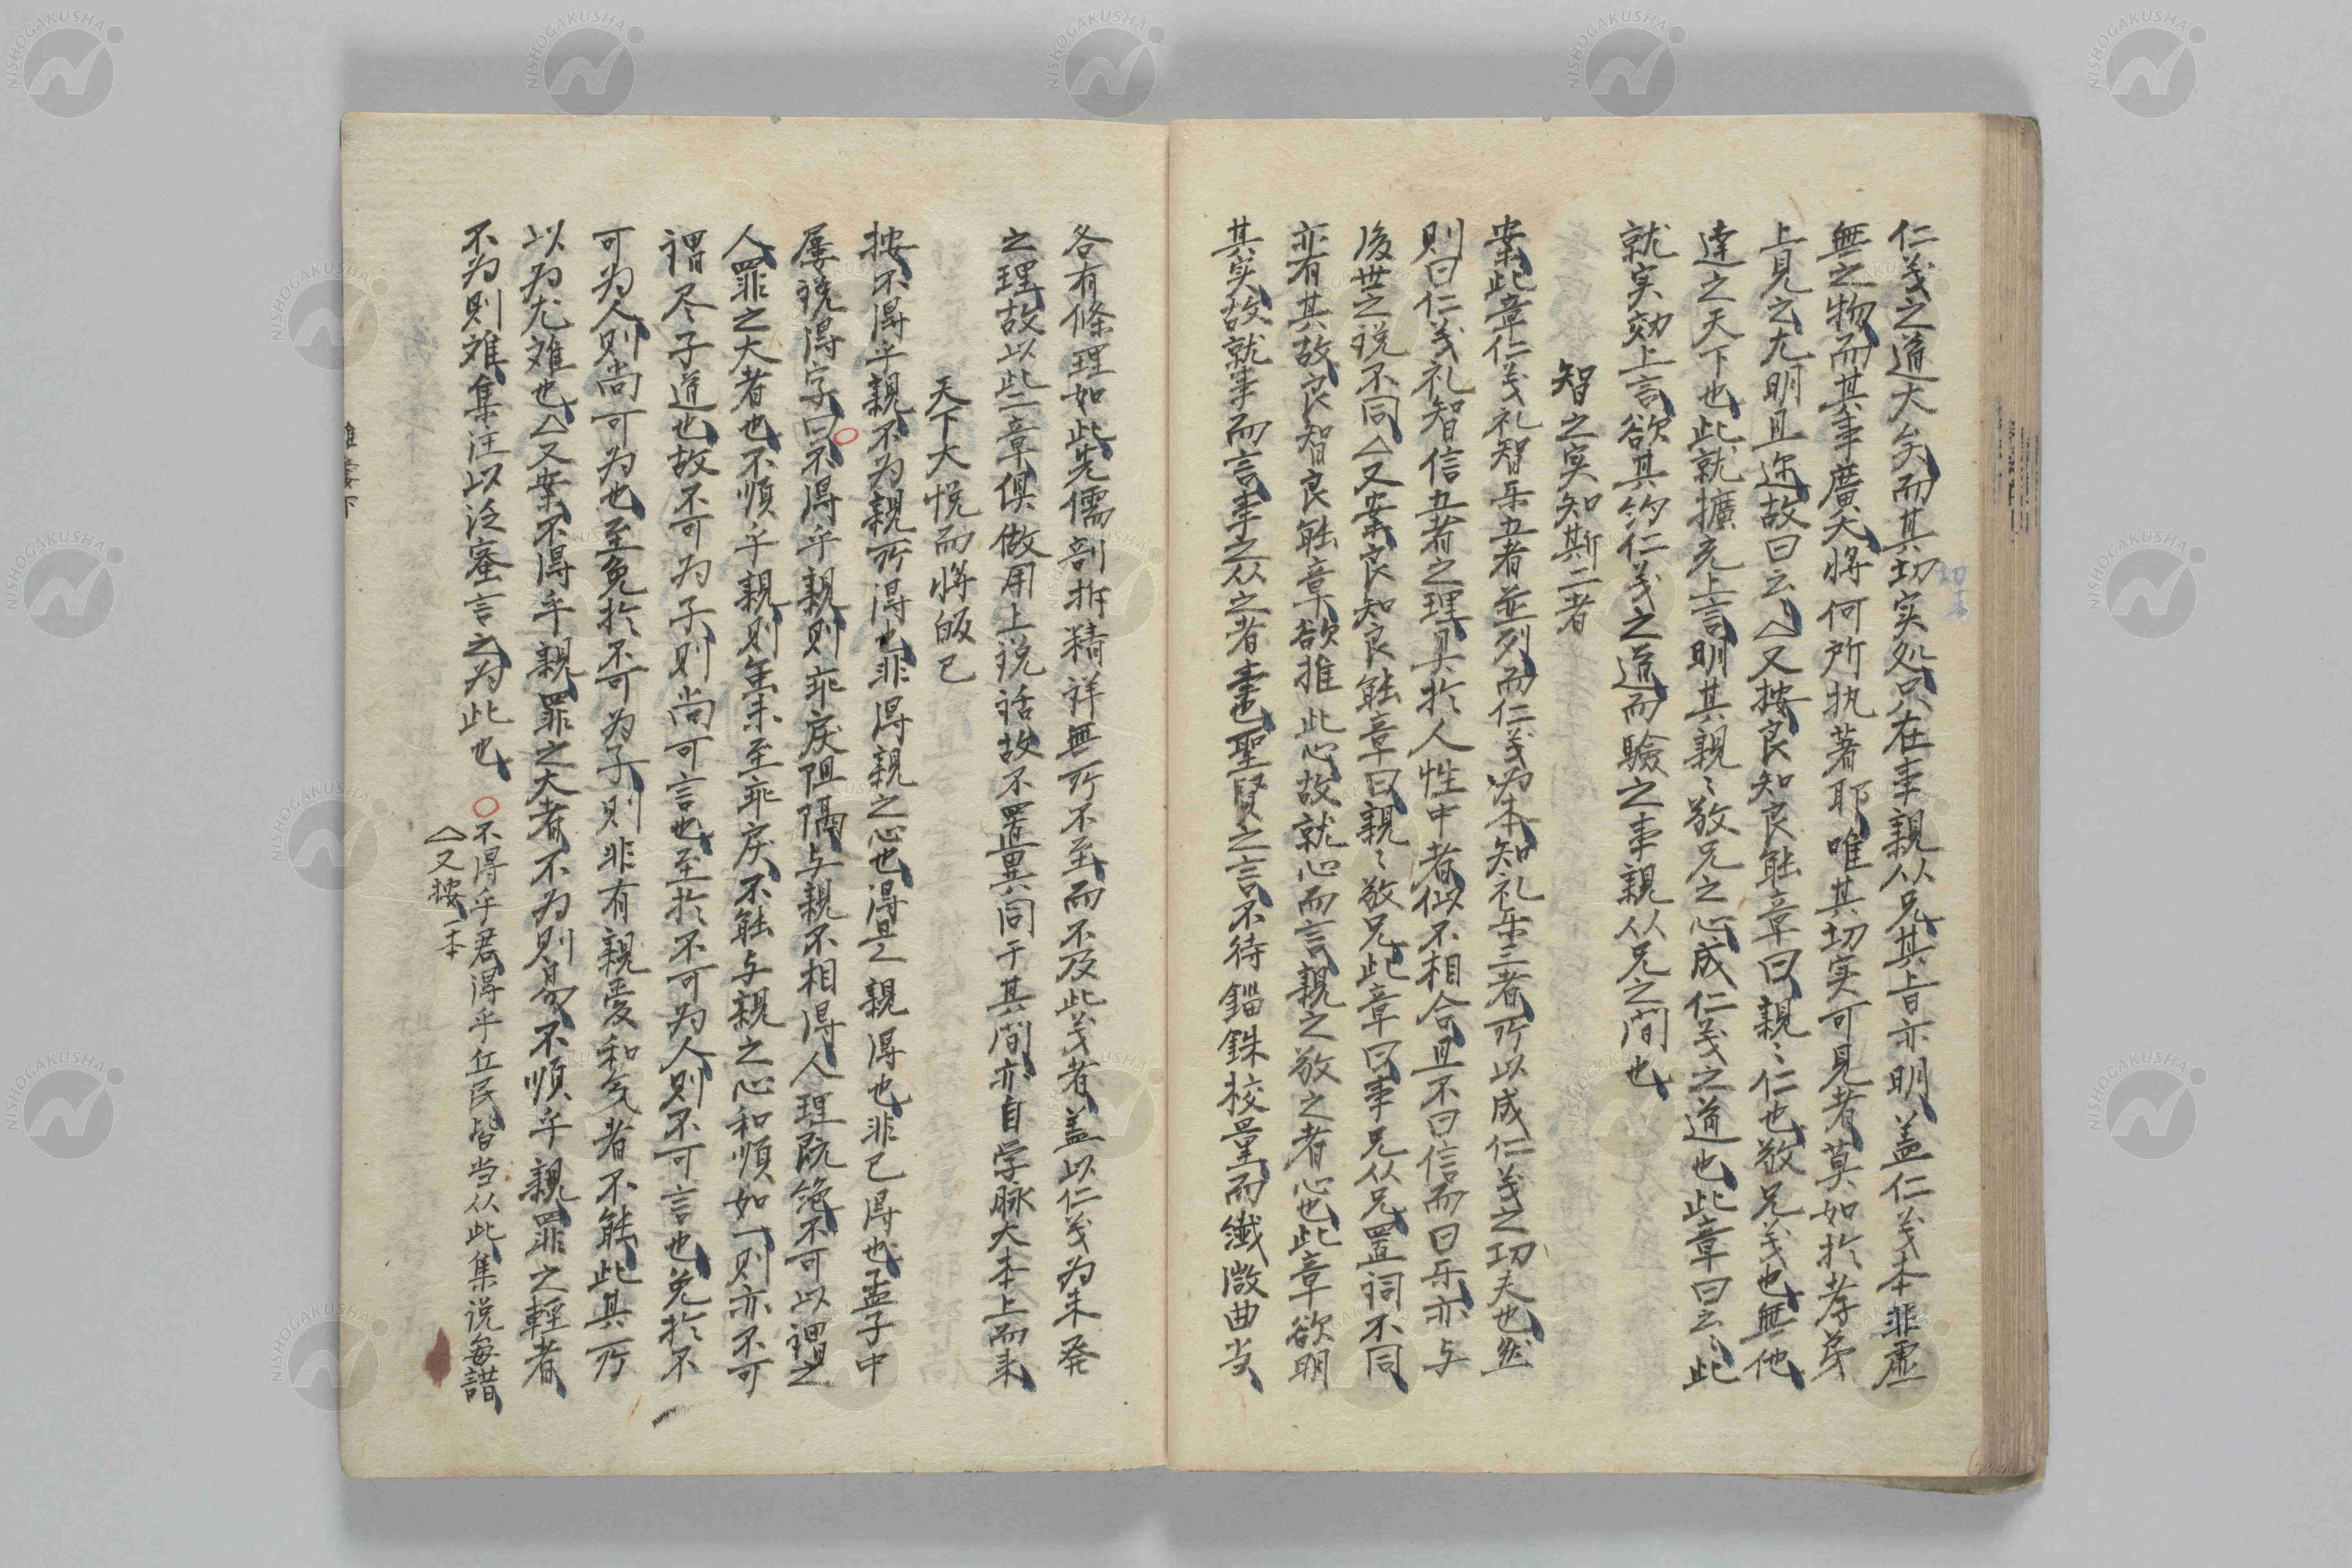 仁義之道大矣而其切实処只在事親从兄其旨亦明蓋仁義本非虚
無之物而其事廣矣将何所执著耶唯其切实可見者莫如於孝弟
上見之尤明且迩故曰云〻△又按良知良能章曰親〻仁也敬兄義也無他
達之天下也此就擴充上言明其親〻敬兄之心成仁義之道也此章曰云〻此
就实効上言欲其約仁義之道而驗之事親从兄之間也
智之实知斯二者
案此章仁義礼智乐五者並列而仁義为本知礼乐三者所以成仁義之功夫也然
則曰仁義礼智信五者之理具於人性中者似不相合且不曰信而曰乐亦与
後世之説不同△又案良知良能章曰親〻敬兄此章曰事兄从兄置詞不同
亦有其故良智良能章欲推此心故就心而言親之敬之者心也此章欲明
其实故就事而言事之从之者事也聖賢之言不待錙銖校量而纎微曲当
各有條理如此先儒剖拆精详無所不至而不及此義者盖以仁義为未発
之理故以此二章俱做用上説话故不置異同于其間亦自学脉大本上而来
天下大悦而将皈已
按不得乎親不为親所得也非得親之心也得是親得也非己得也孟子中
屡说得字曰不得乎親則乖戾阻隔与親不相得人理既绝不可以謂之
人罪之大者也不順乎親則虽未至乖戾不能与親之心和順如一則亦不可
謂尽子道也故不可为子則尚可言也至於不可为人則不可言也免於不
可为人則尚可为也至免於不可为子則非有親愛和気者不能此其所
以为尤难也△又案不得乎親罪之大者不为則易不順乎親罪之軽者
不为則难集注以泛蜜言之为此也 ○不得乎君得乎丘民皆当从此集说每諎
△又按一本